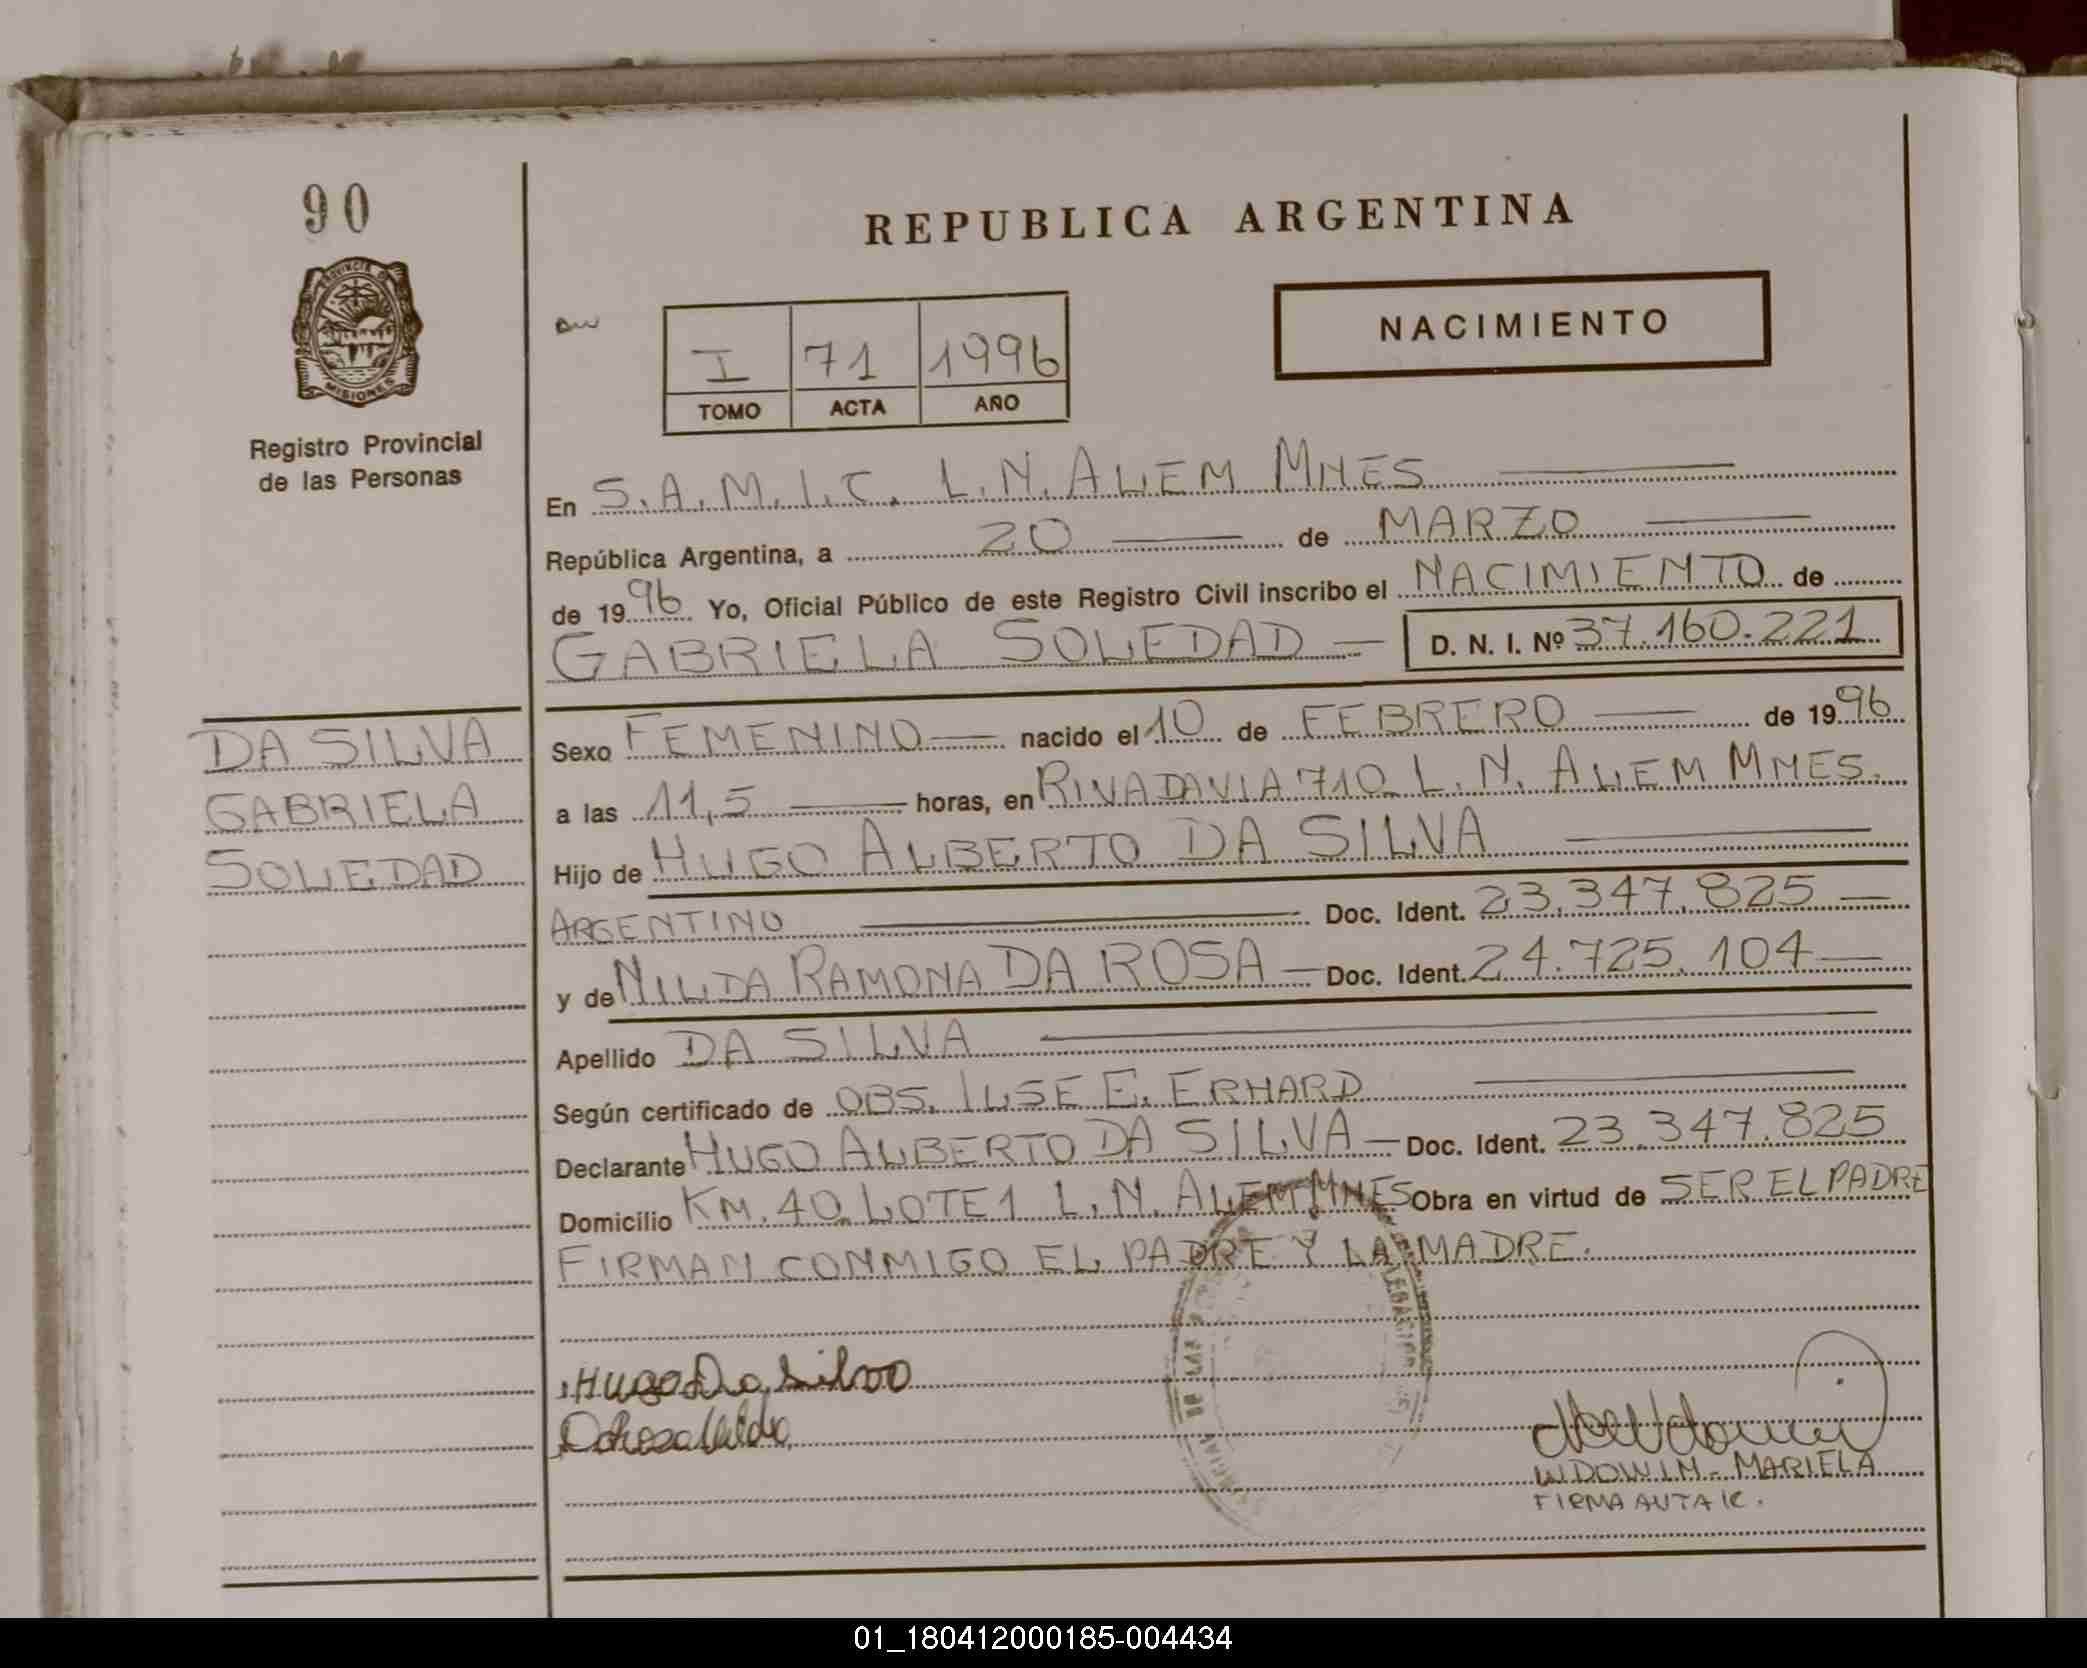 90
REPUBLICA ARGENTINA
PROVINCIA DE
MISIONES
NACIMIENTO
I 71 1996
TOMO ACTA AÑO
Registro Provincial
de las Personas
En S.A.M.I.C. L.N. ALEM MNES
República Argentina, a 20 de MARZO
de 1996 Yo, Oficial Público de este Registro Civil inscribo el NACIMIENTO de
GABRIELA SOLEDAD D. N. I. Nº 37.160.221
DA SILVA
GABRIELA
SOLEDAD
Sexo FEMENINO nacido el 10 de FEBRERO de 1996
a las 11,5 horas, en RIVADAVIA 710 L.N. ALEM MNES.
Hijo de HUGO ALBERTO DA SILVA
ARGENTINO Doc. Ident. 23.347.825
y de NILDA RAMONA DA ROSA Doc. Ident. 24.725.104
Apellido DA SILVA
Según certificado de OBS. ILSE E. ERHARD
Declarante HUGO ALBERTO DA SILVA Doc. Ident. 23.347.825
Domicilio KM. 40 LOTE 1 L.N. ALEM MNES Obra en virtud de SER EL PADRE
FIRMAN CONMIGO EL PADRE Y LA MADRE.
Hugo Da Silva
Da Rosa Nilda
WDOWIN - MARIELA
FIRMA AUTARC.
01_180412000185-004434